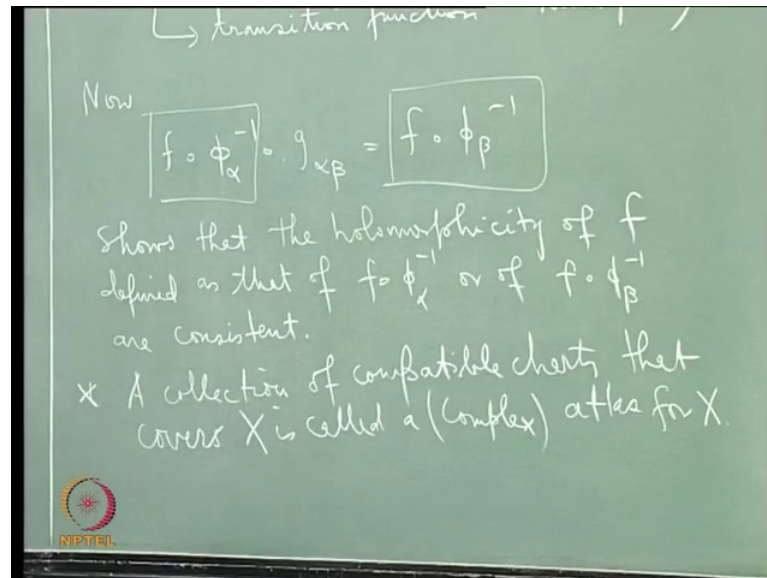 ↳ transition function
Now
f ∘ ϕ_α^{-1} ∘ g_{αβ} = f ∘ ϕ_β^{-1}
shows that the holomorphicity of f
defined as that of f∘ϕ_α^{-1} or of f∘ϕ_β^{-1}
are consistent.
* A collection of compatible charts that
covers X is called a (complex) atlas for X.
NPTEL